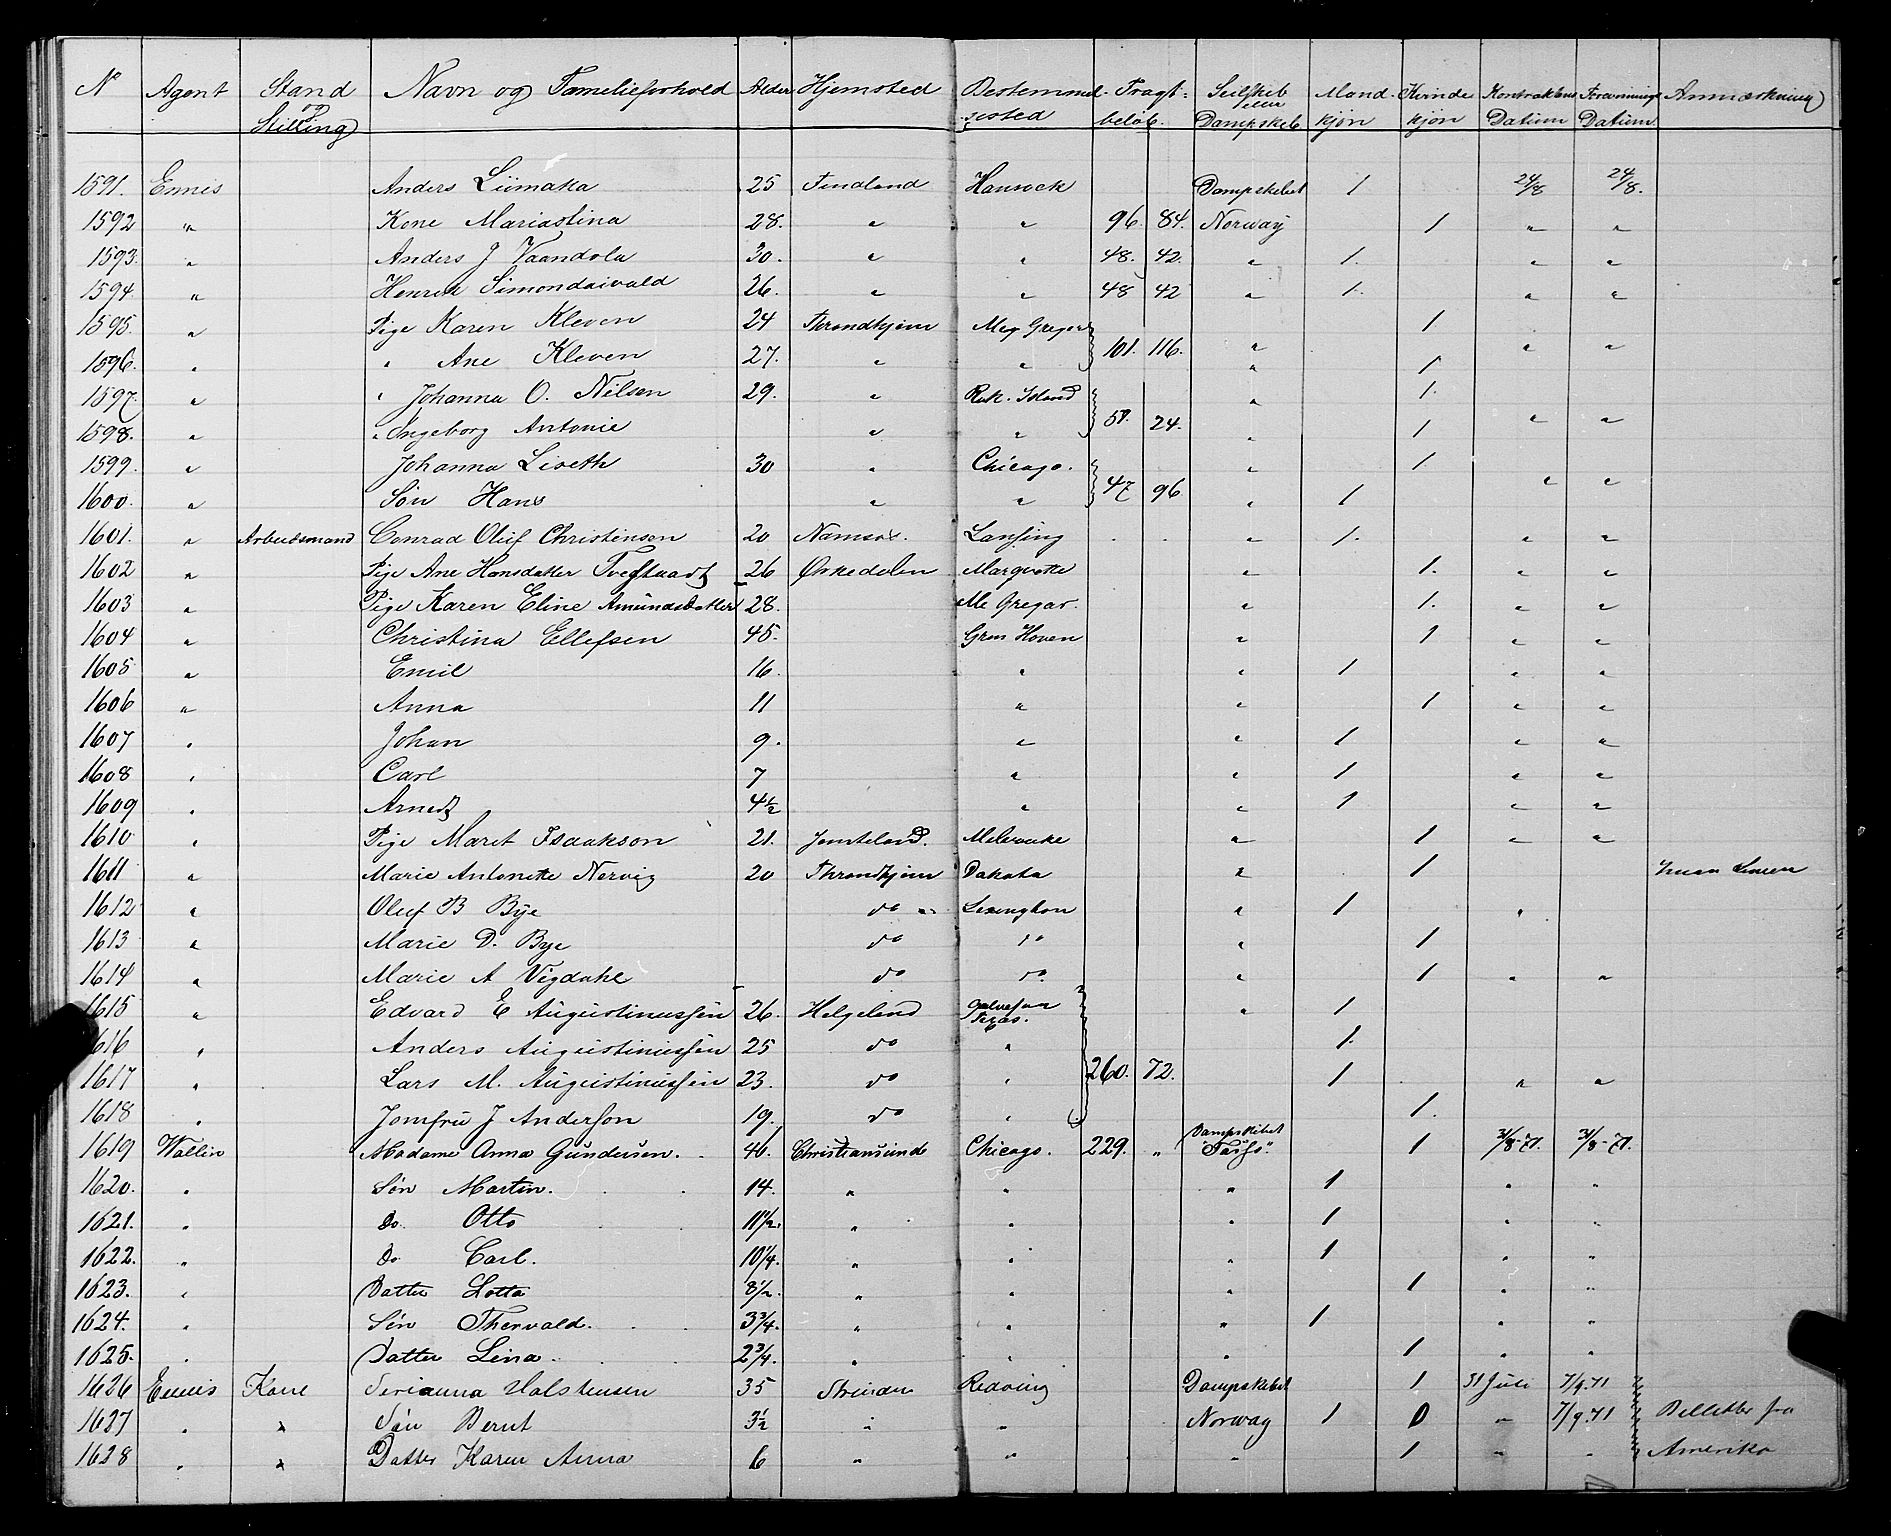 No Agent Stand og Stilling Navn og Familieforhold Alder Hjemsted Bestemmelsessted Fragtbeløb. Seilskib eller Dampskib Mandkjön Kvindekjön Kontraktens Datum Datum Anmærkning
1591. Ennis Anders Liimaka 25 Findland Hansock Dampskibet 1 24/8 24/8.
1592 " Kone Mariastina 28. " " 96. 84. Norway 1 " "
1593. " Anders J Vaandola 30. " " 48. 42. " 1. " "
1594. " Henrik 26. " " 48 42 " 1. " "
1595. " Pige Karen Kleven 24 Throndhjem Meg Gregor 1
1596. " " Ane Kleven 27. " " 101. 116. " 1 " "
1597. " " Johanna O. Nilsen 29. " Rok. Island " 1.
1598. " " Ingeborg Antonie " " 51. 24. " 1 " "
1599. " Johanna Liseth 30 " Chicago. " 1
1600. " Søn Hans " " 47 96 " 1 " "
1601. " Arbeidsmand Conrad Oluf Christensen 20 Namsos. Lansing . . " 1. " "
1602 " Pige Ane Hansdatter 26 Ørkedalen Marquette " 1. " "
1603 " Pige Karen Eline Amundsdatter 28. Mc Gregor. " 1. " "
1604 " Christina Ellefsen 45. Gren Hoven " 1 " "
1605 " Emil 16. " " 1 " "
1606 " Anna 11 " " 1 " "
1607 " Johan 9. " " 1 " "
1608 " Carl 7 " " 1 " "
1609 " Arnedt 4½ " " 1 " "
1610 " Pige Maret Isaakson 21. Jemteland. Milwauke " 1 " "
1611 " Marie Antonette Nervig 20 Throndhjem Dakota " 1
1612 " Oluf B Bye do " Lexington " 1 "
1613 " Marie D. Bye do do " 1
1614 " Marie A Vigdahl do do " 1 " "
1615 " Edvard E Augustinussen 26. Helgeland Galveson Texas. " 1
1616 " Anders Augustinussen 25 do " 1.
1617 " Lars M. Augustinussen 23. do " 260. 72. 1 " "
1618 " Jomfru J Anderson 19. do " 1.
1619 Wallin Madame Anna Gundersen. 40. Christiansunde Chicago. 229. " Dampskibet "Tasso." 1 31/8-71. 31/8-71.
1620. " Søn Martin. 14. " " " 1 " "
1621. " Do Otto 11½. " " " 1 " "
1622. " Do Carl. 10¼. " " " 1 " "
1623. " Datter Lotta 8½. " " " 1 " "
1624. " Søn Thorvald. 3¾. " " " 1 " "
1625. " Datter Lina. 2¾. " " " 1 " "
1626 Ennis Kone Serianna Halstensen 35 Strinden Redving Dampskibet 1 31 Juli 7/9.71
1627 " " Søn Bernt 3½ " " Norway 1 0 " 7/9.71 Billetter fra
1628 " " Datter Karen Anna 6 " " " 1 " " Amerika